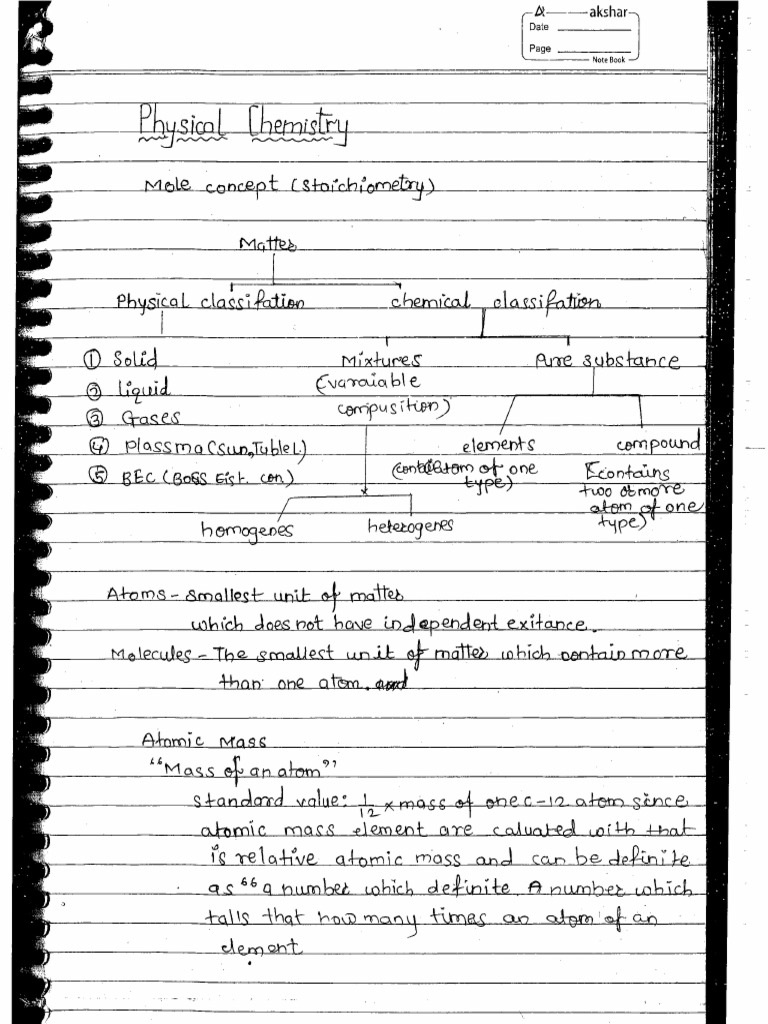 akshar
Date
Page
Note Book
Physical Chemistry
Mole concept (Stoichiometry)
Matter
Physical classifation chemical classifation
① Solid Mixtures Pure substance
② liquid (varaiable
③ Gases compusition)
④ Plassma (Sun, Tuble L) elements compound
⑤ BEC (Boss Eist. con) atom of one (contains
type) two or more
atom of one
homogenes heterogenes type)
Atoms - smallest unit of matter
which does not have independent exitance.
Molecules - The smallest unit of matter which contain more
than one atom.
Atomic Mass
"Mass of an atom"
standard value: 1/12 × mass of one C-12 atom since
atomic mass element are caluated with that
is relative atomic mass and can be definite
as "a number which definite. A number which
talls that how many times an atom of an
element